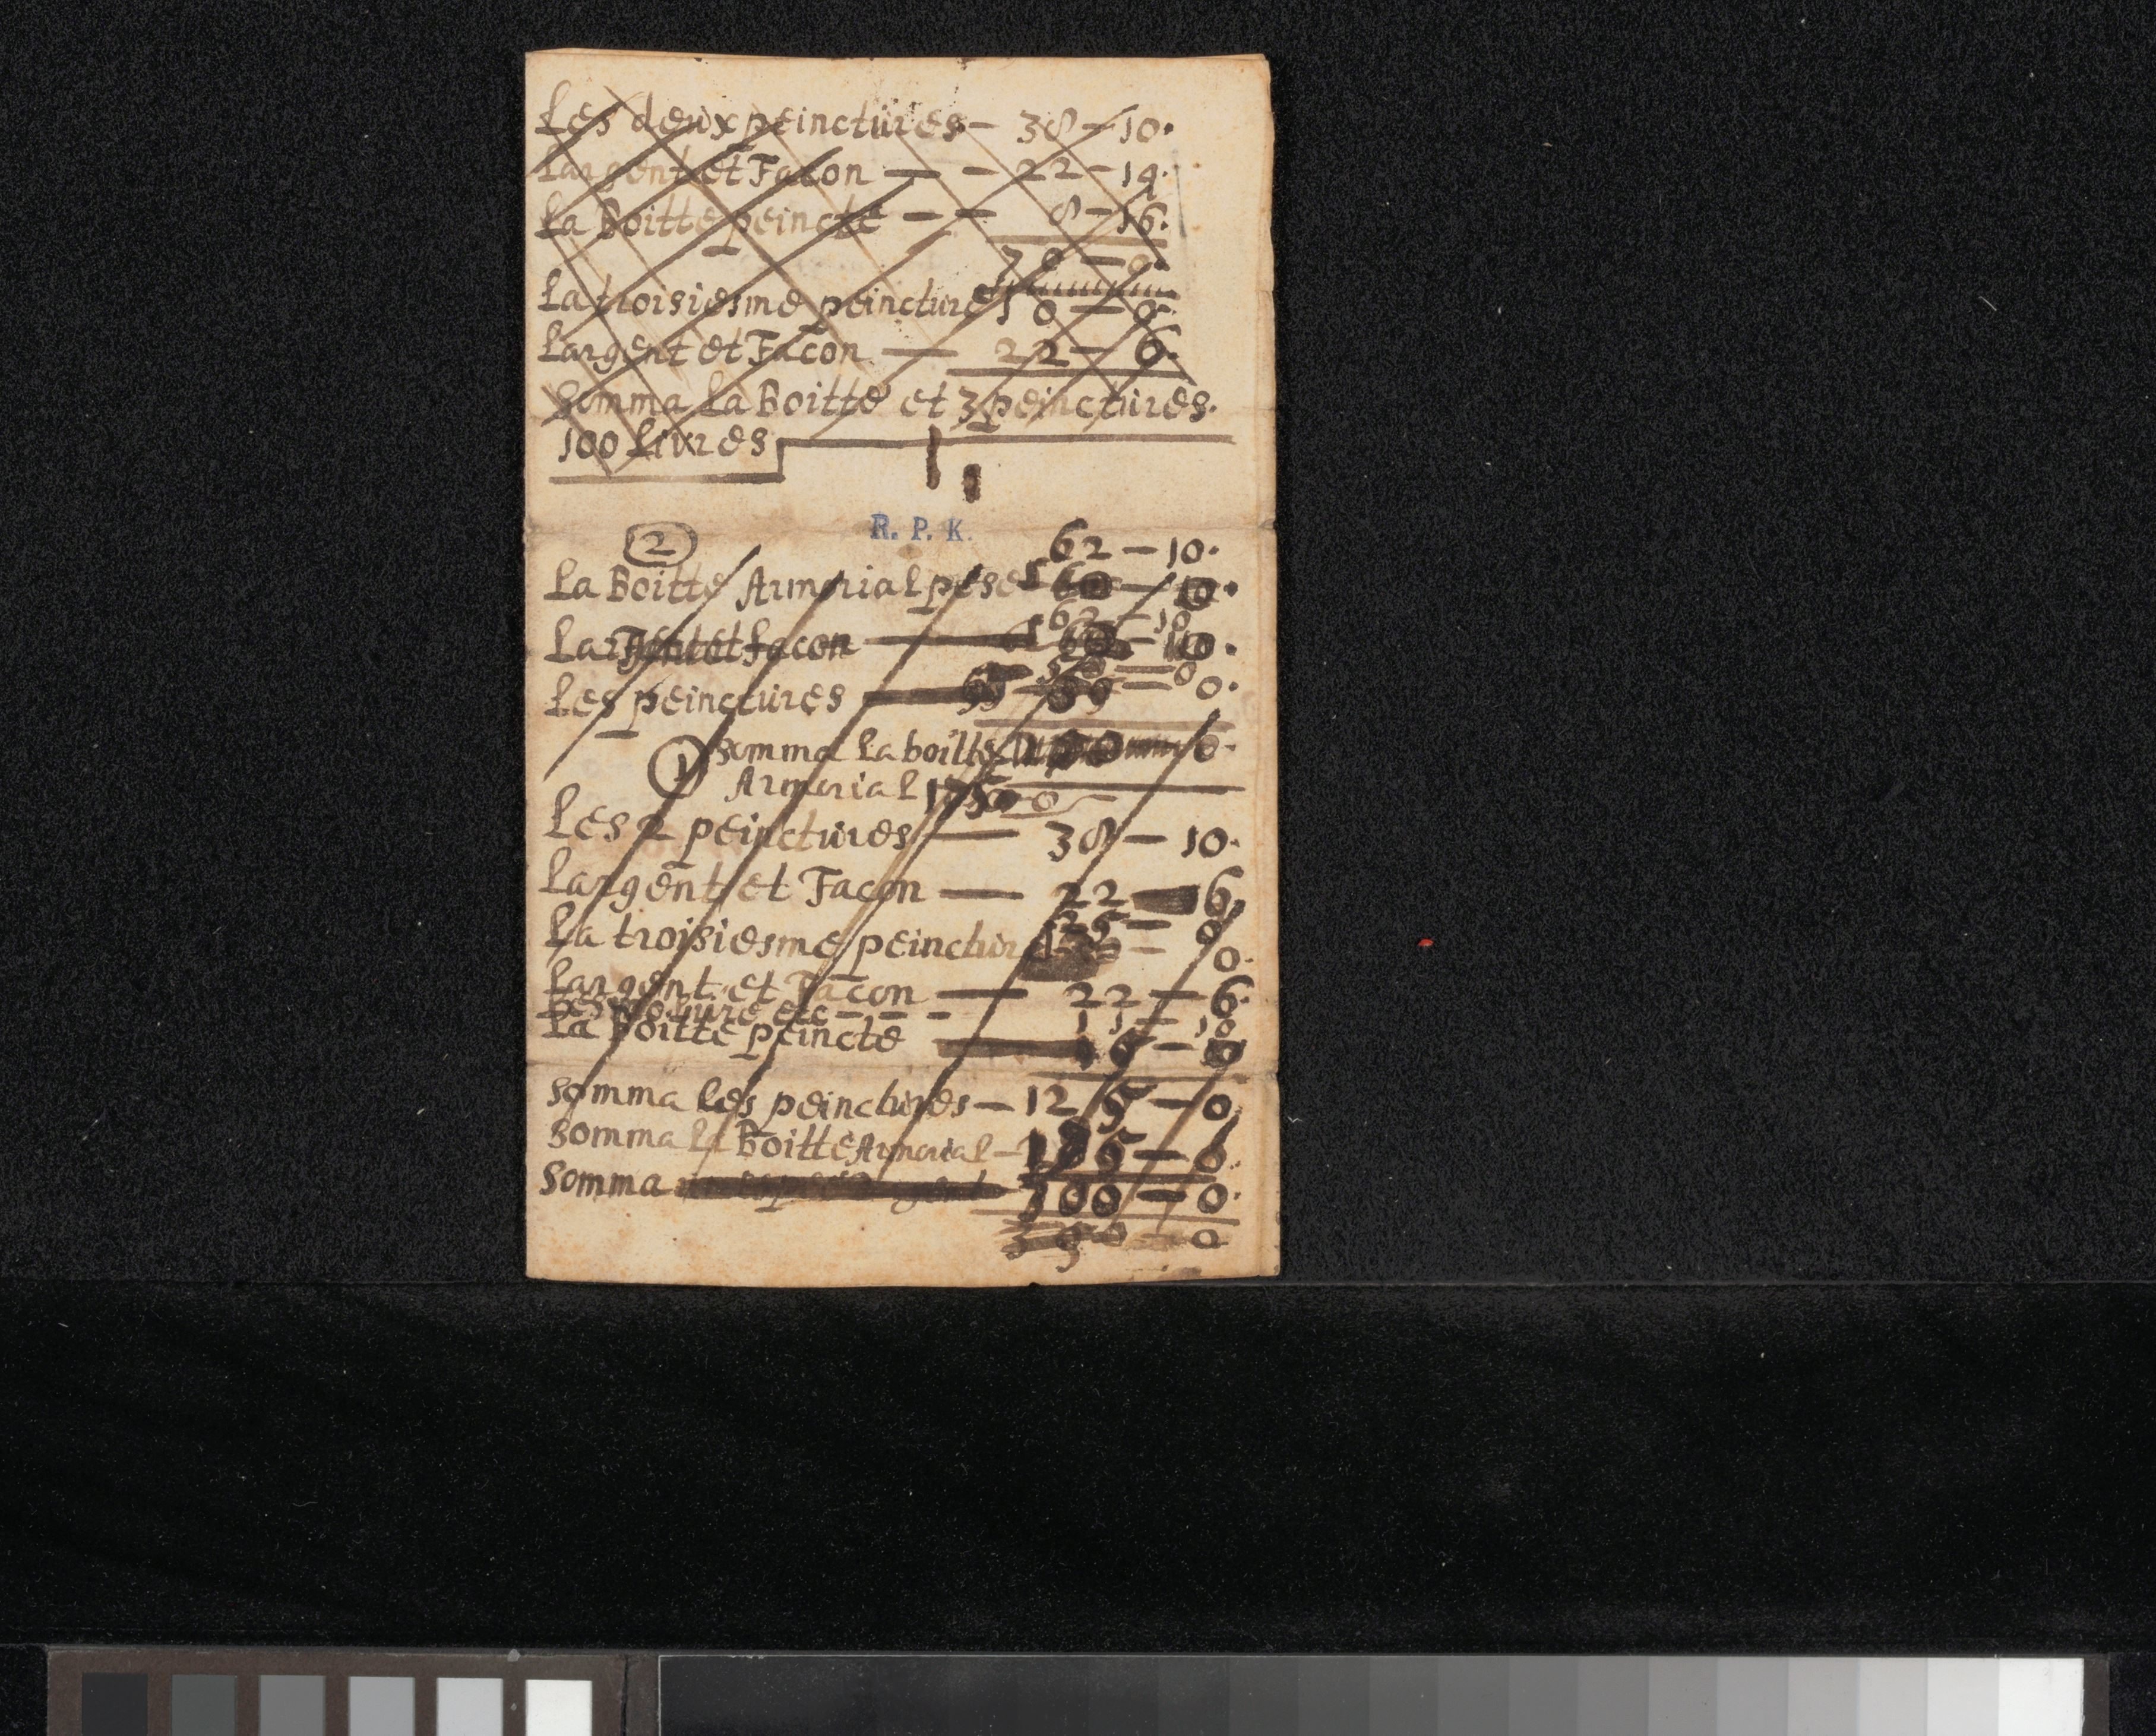 Les deux peinctüres — 38 — 10.
Largent et Facon — — 22 — 14.
La Boitte peincte — — 8 — 16.
70 — 0.
La troisiesme peincture 10 — 0.
Largent et Facon — 22 — 6.
Somma La Boitte et 3 peinctures.
100 Livres
R. P. K.
2
62 — 10.
La Boitte Armorial pese 60 — 10.
62 — 10
Largent et facon — 10.
50 — 0
Les peinctures — 0.
1 Somma La boitte 0.
Armorial
Les 2 peinctures — 38 — 10.
Largent et Facon — 22 — 6.
25 — 0
La troisiesme peinctur — 0.
Largent et Facon — 22 — 6.
etc — — — 11 — 18
La Boitte peincte
Somma Les peinctures — 125 — 0.
Somma La Boitte Armorial —
Somma 300 — 0.
0